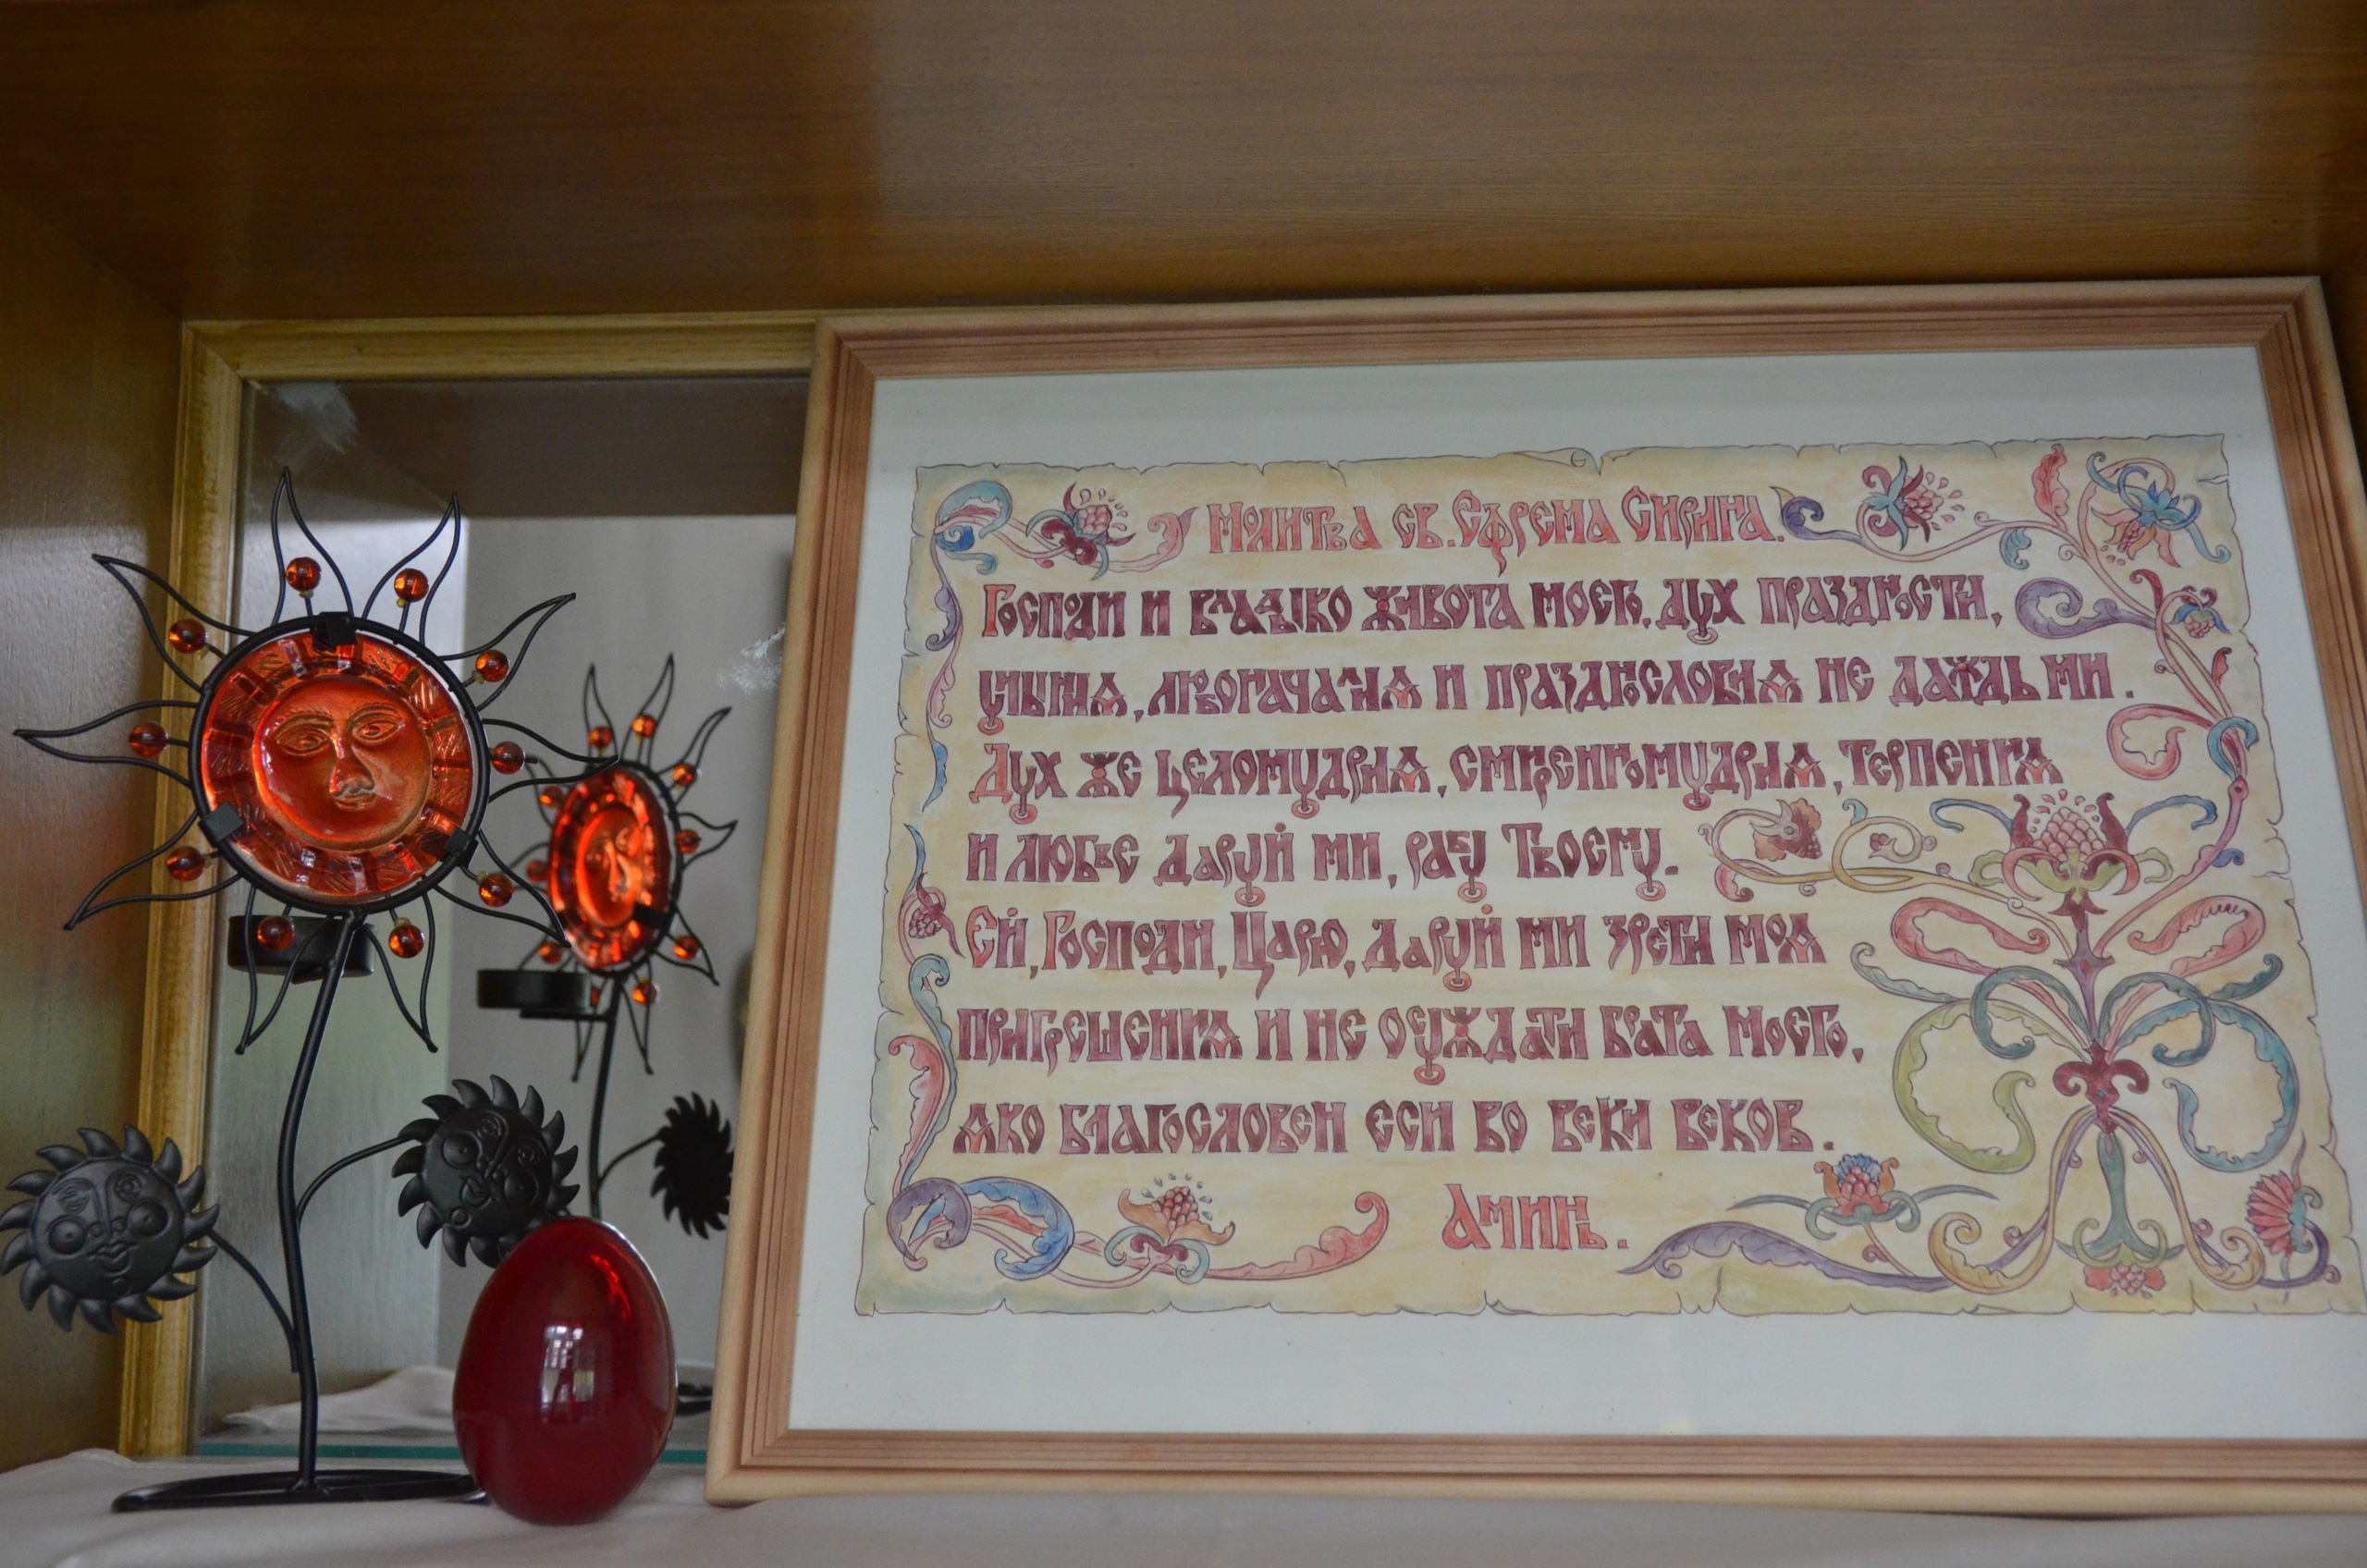 Молитва св. Ефрема Сирина.
Господи и владыко живота моего, дух праздности,
уныния, любоначалия и празднословия не даждь ми.
Дух же целомудрия, смиренномудрия, терпения
и любве даруй ми, рабу Твоему.
Ей, Господи, Царю, даруй ми зрети моя
пригрешения и не осуждати брата моего,
яко благословен еси во веки веков.
Аминь.